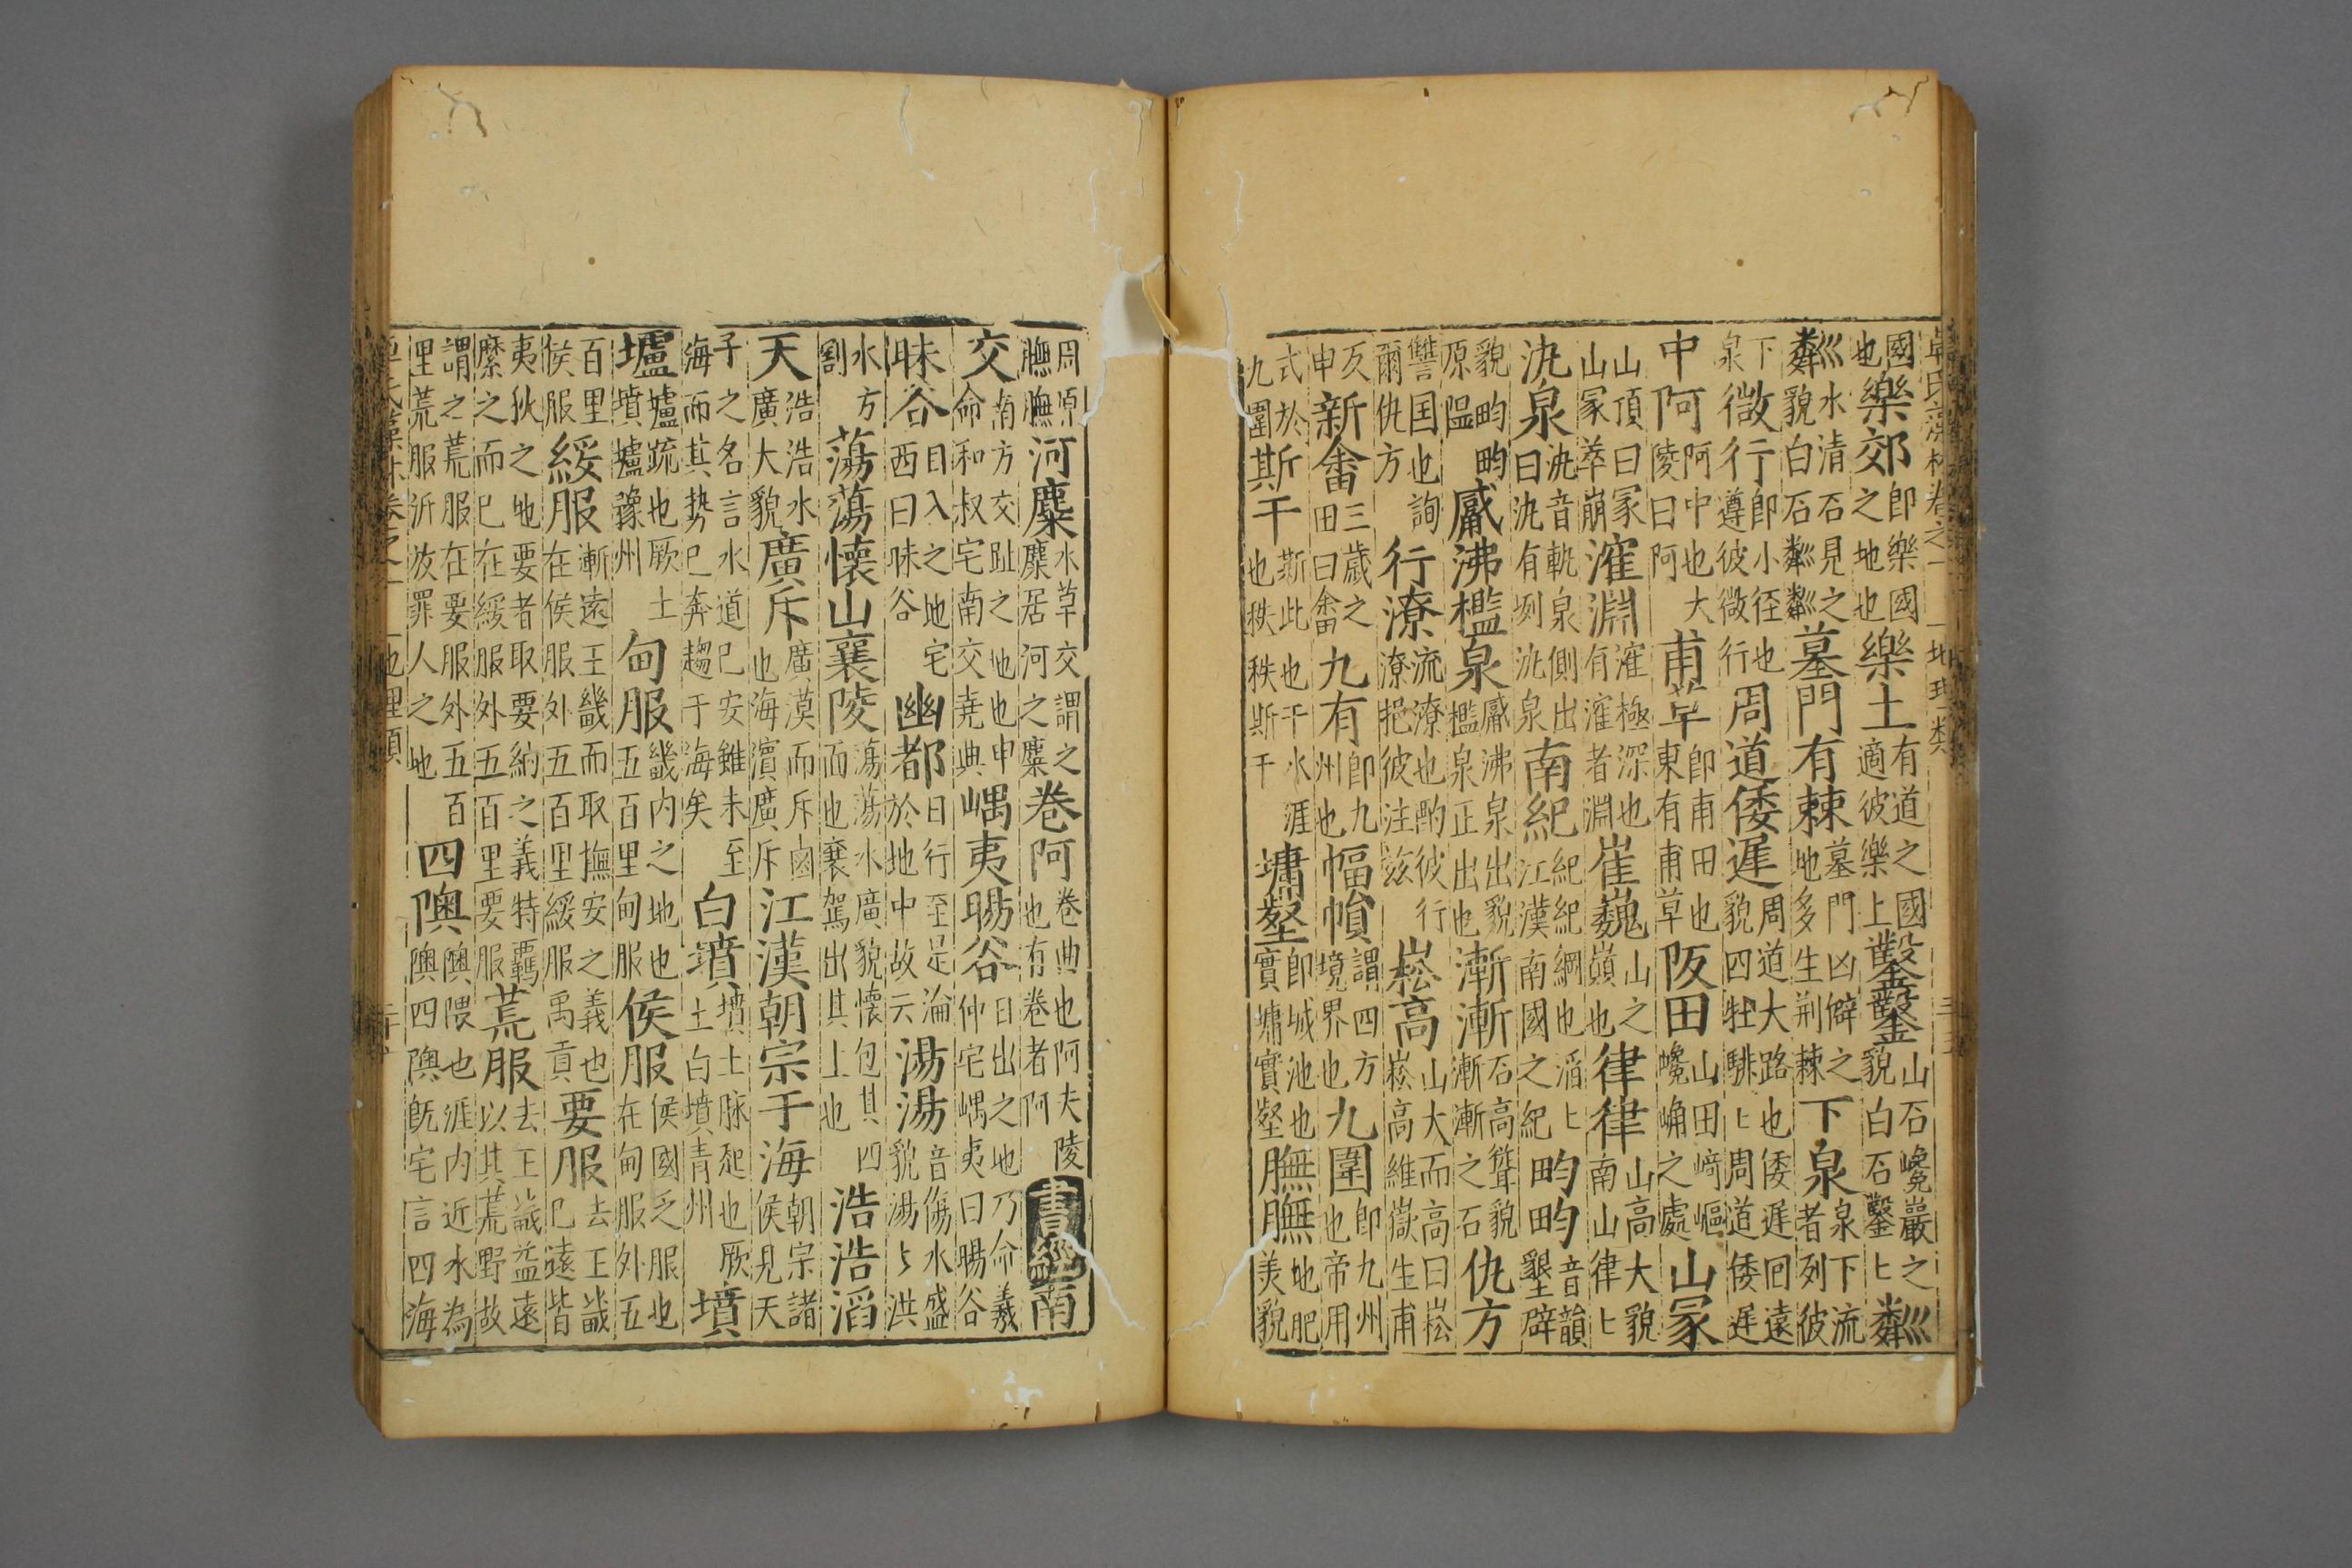 卓氏藻林卷之一 地理類
國也樂郊即樂國之地也樂土有道之國適彼樂土鑿鑿山石巉巖之貌白石鑿〻粼
粼水清石見之貌白石粼粼墓門有棘墓門凶僻之地多生荆棘下泉泉下流者列彼
下泉微行行即小徑也遵彼微行周道倭遲周道大路也倭遲回遠貌四牡騑〻周道倭遲
中阿阿中也大陵曰阿甫草即甫田也東有甫草阪田山田﨑嶇巉峗之處山冢
山頂曰冢山冢崒崩漼淵漼極深也有漼者淵崔巍山之巔也律律山高大貌南山律〻
氿泉氿音軌泉側出曰氿有冽氿泉南紀紀紀綱也滔〻江漢南國之紀畇畇音韻墾辟
貌畇畇原隰觱沸檻泉觱沸泉出貌檻泉正出也漸漸石高聳貌漸漸之石仇方
讐国也詢爾仇方行潦流潦也酌彼行潦挹彼注兹崧高山大而高曰崧崧高維嶽生甫
及申新畬三歲之田曰畬九有即九州也幅幀謂四方境界也九圍即九州也帝用
式於九圍斯干斯此也干水涯也秩秩斯干墉壑即城池也實墉實壑膴膴地肥美貌
周原膴膴河麋水草交謂之麋居河之麋卷阿卷曲也阿大陵也有卷者阿書經南
交南方交趾之地也申命和叔宅南交堯典嵎夷暘谷日出之地乃命羲仲宅嵎夷曰暘谷
昧谷日入之地宅西曰昧谷幽都日行至是淪於地中故云湯湯音傷水盛貌湯〻洪
水方割蕩蕩懷山襄陵蕩蕩水廣貌懷包其四面也襄駕出其上也浩浩滔
天浩浩水廣大貌廣斥廣漠而斥鹵也海濵廣斥江漢朝宗于海朝宗諸侯見天
子之名言水道已安雖未至海而其勢已奔趨于海矣白墳墳土脉起也厥土白墳青州墳
壚壚疏也厥土墳壚豫州甸服畿内之地也五百里甸服侯服侯國之服也在甸服外五
百里侯服綏服漸遠王畿而取撫安之義也在侯服外五百里綏服禹貢要服去王畿已遠皆
夷狄之地要者取要約之義特羈縻之而已在綏服外五百里要服荒服去王畿益遠以其荒野故
謂之荒服在要服外五百里荒服流放罪人之地四隩隩隈也涯内近水為隩四隩旣宅言四海
卓氏藻林卷之一